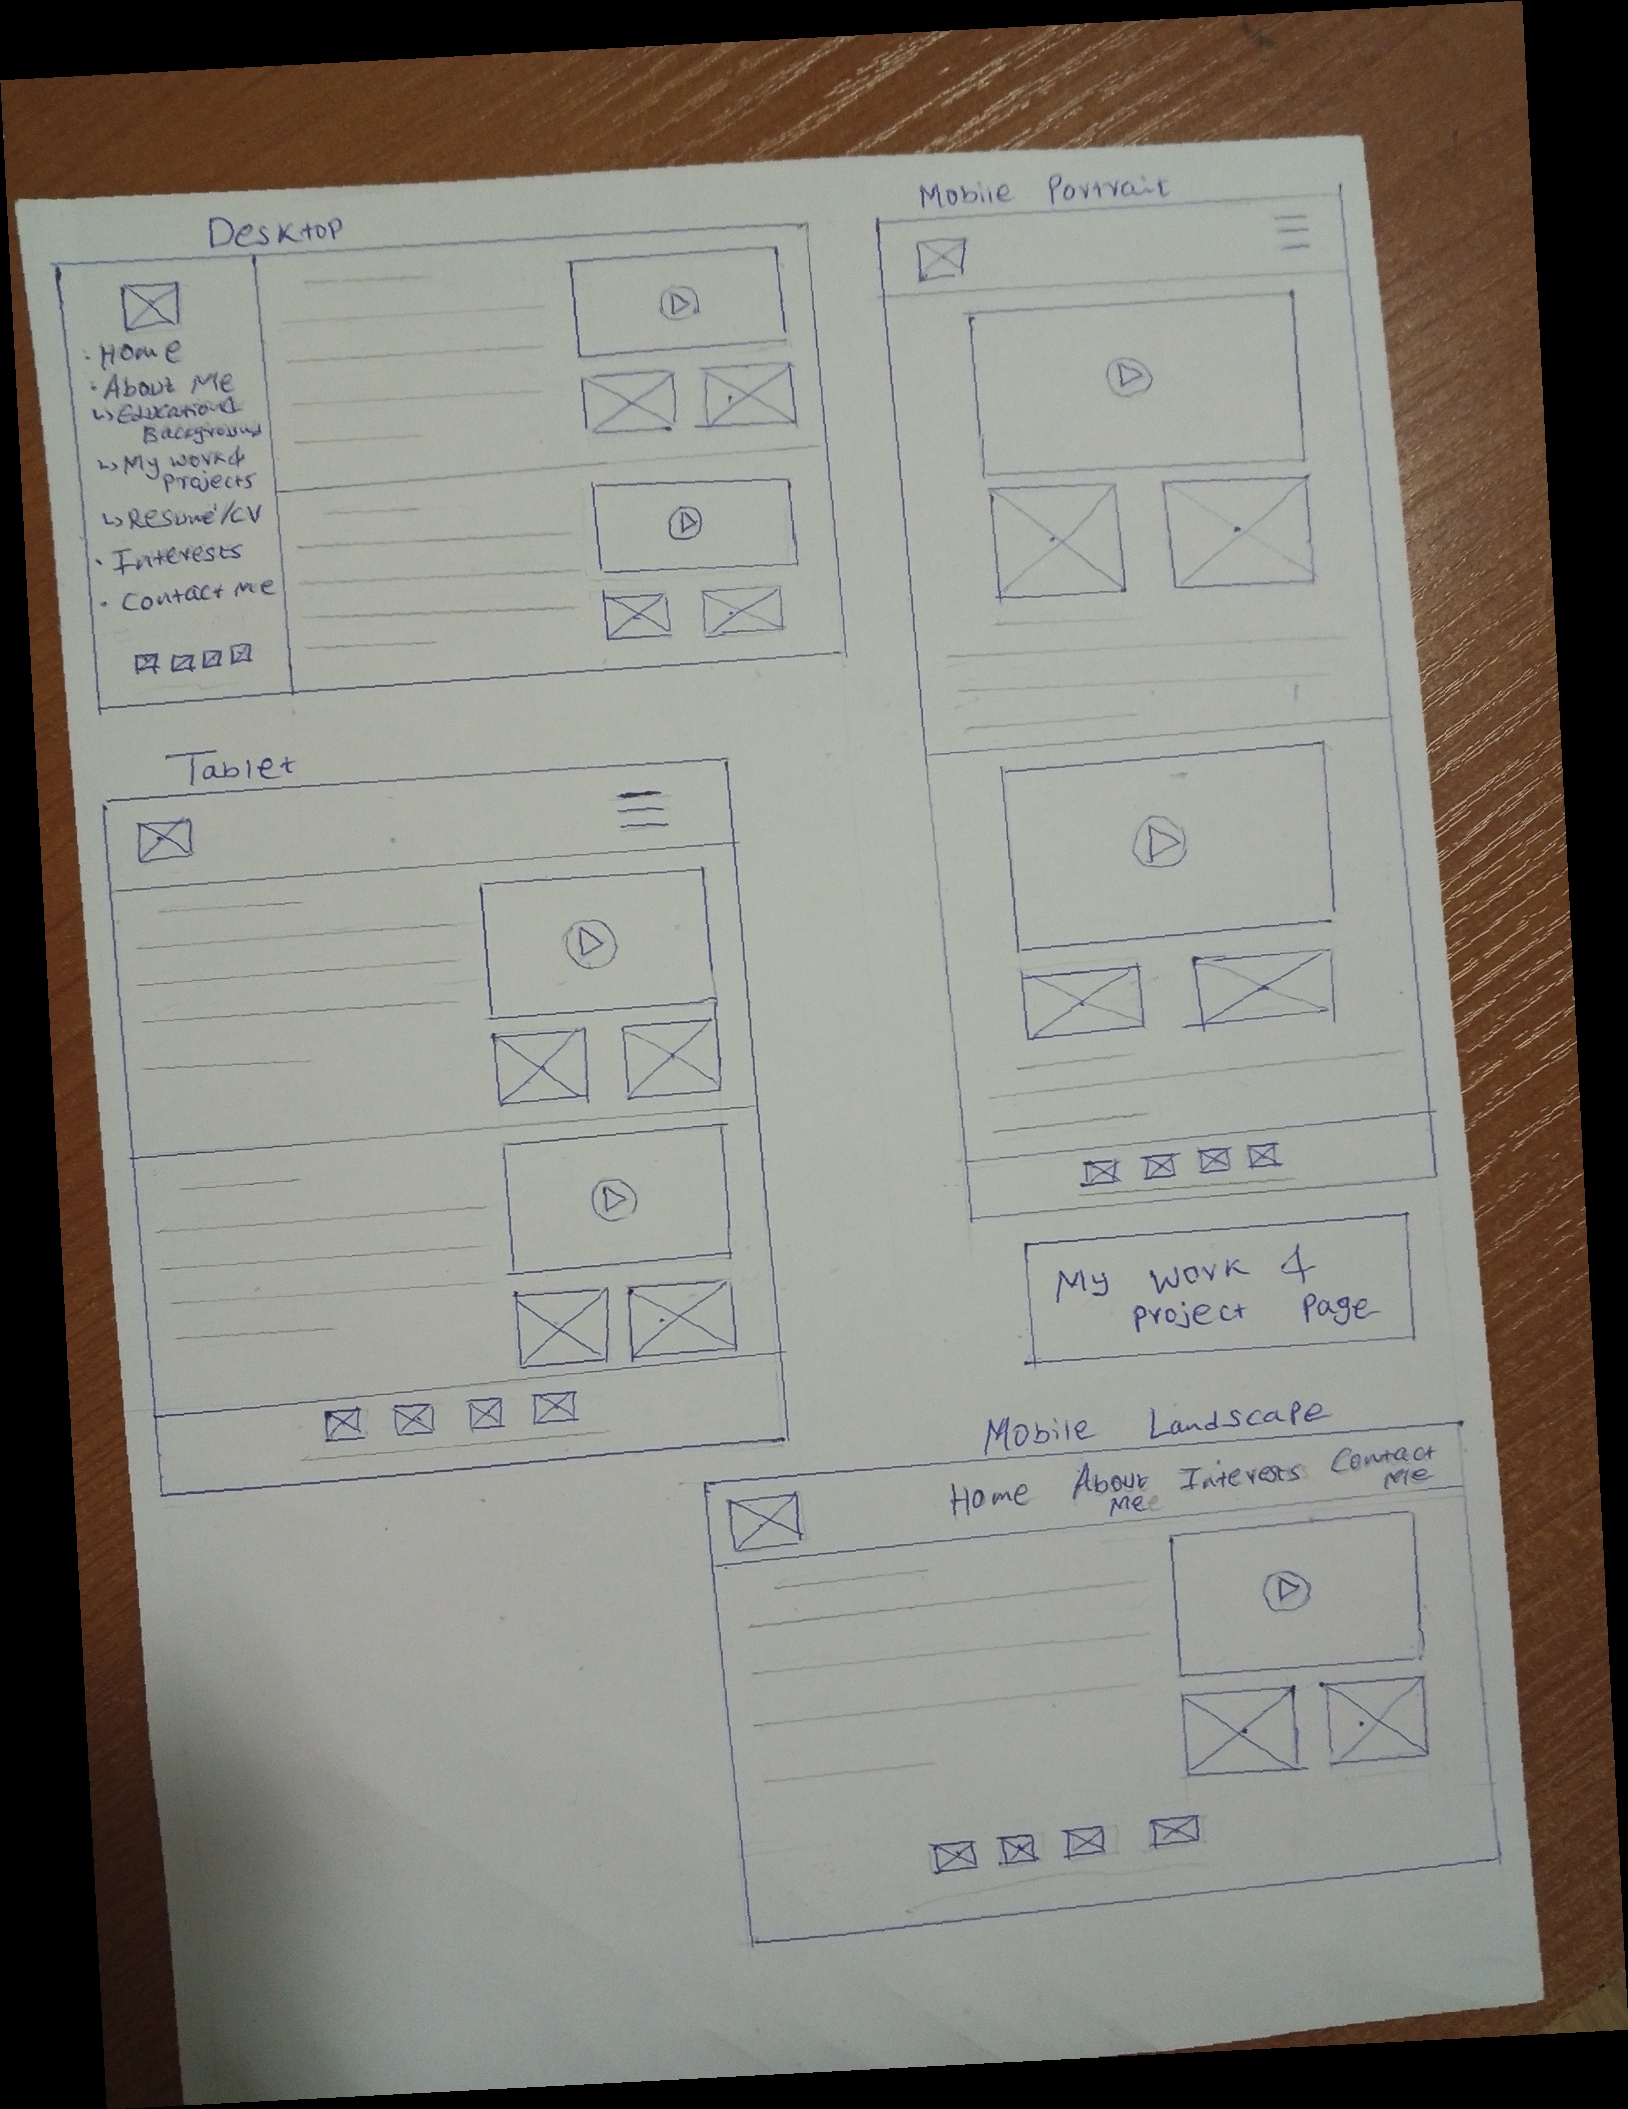 Desktop
• Home
• About Me
↳ Education &
Background
↳ My work &
Projects
↳ Resumé/CV
• Interests
• Contact me
Mobile Portrait
Tablet
My work &
project Page
Mobile Landscape
Home About Me Interests Contact Me